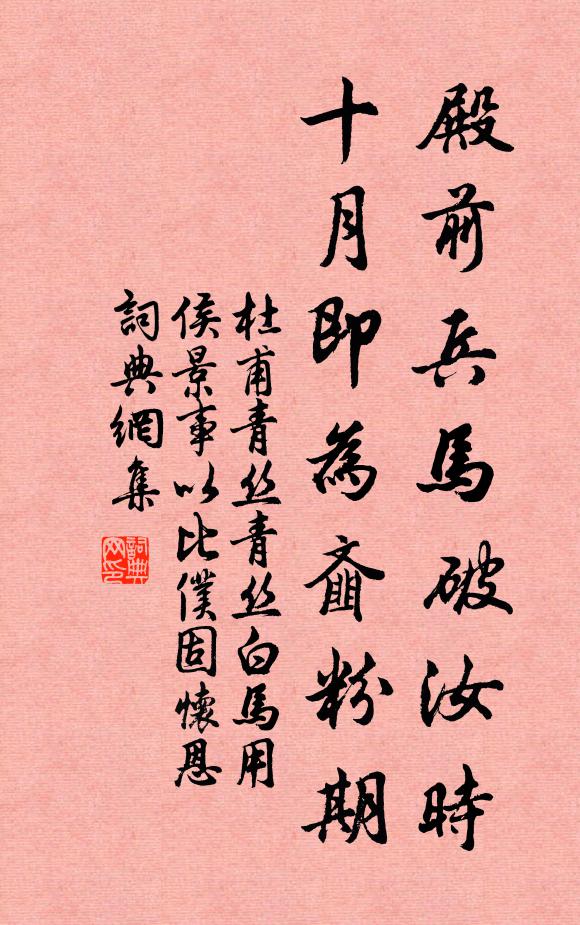 殿前兵馬破汝時
十月即為齑粉期
杜甫青丝青丝白馬用
侯景事以比僕固懷恩
詞典網集
詞典网印